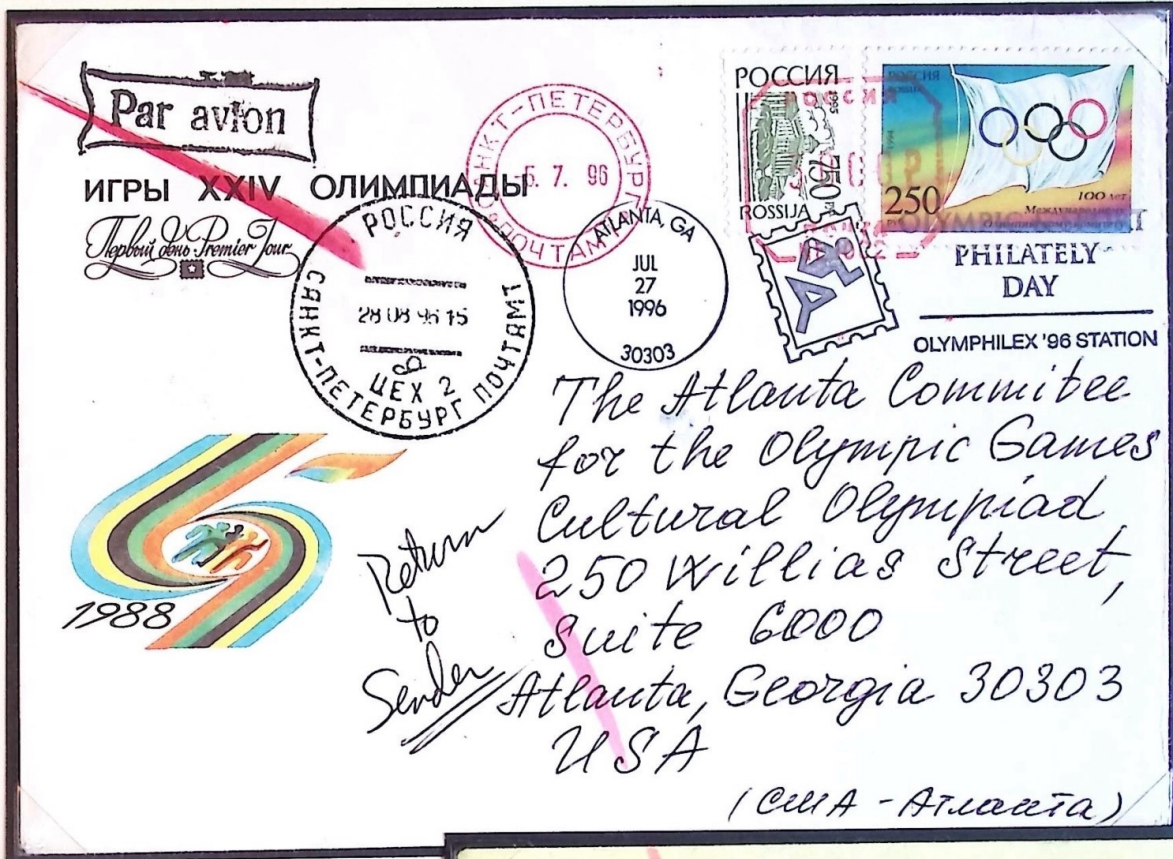 Par avion
ИГРЫ XXIV ОЛИМПИАДЫ
Первый день Premier Jour
САНКТ-ПЕТЕРБУРГ
5. 7. 96
ПОЧТАМТ
РОССИЯ
28 08 96 15
ЦЕХ 2
САНКТ-ПЕТЕРБУРГ ПОЧТАМТ
ATLANTA, GA
JUL
27
1996
30303
РОССИЯ
1995
750
ROSSIJA
РОССИЯ
ROSSIJA
1994
250
100 лет
Международному
Олимпийскому комитету
РОССИЯ
OLYMPIC
PHILATELY
DAY
OLYMPHILEX '96 STATION
1988
Return
to
Sender
The Atlanta Commitee
for the Olympic Games
Cultural Olympiad
250 Willias Street,
Suite 6000
Atlanta, Georgia 30303
USA
(США - Атланта)